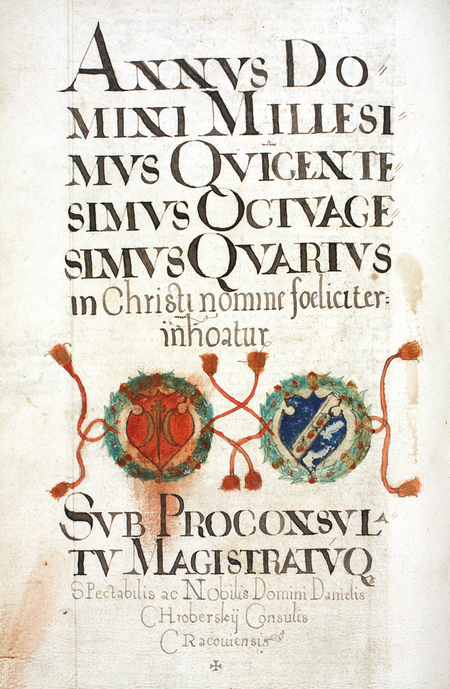 ANNVS DO=
MINI MILLESI
MVS QVIGENTE=
SIMVS OCTVAGE=
SIMVS QVARTVS
in Christi nomine foeliciter:
inhoatur
SVB PROCONSVLA
TV MAGISTRATVQ
SPectabilis ac Nobilis Domini Danielis
CHroberskij Consulis
CRacouiensis